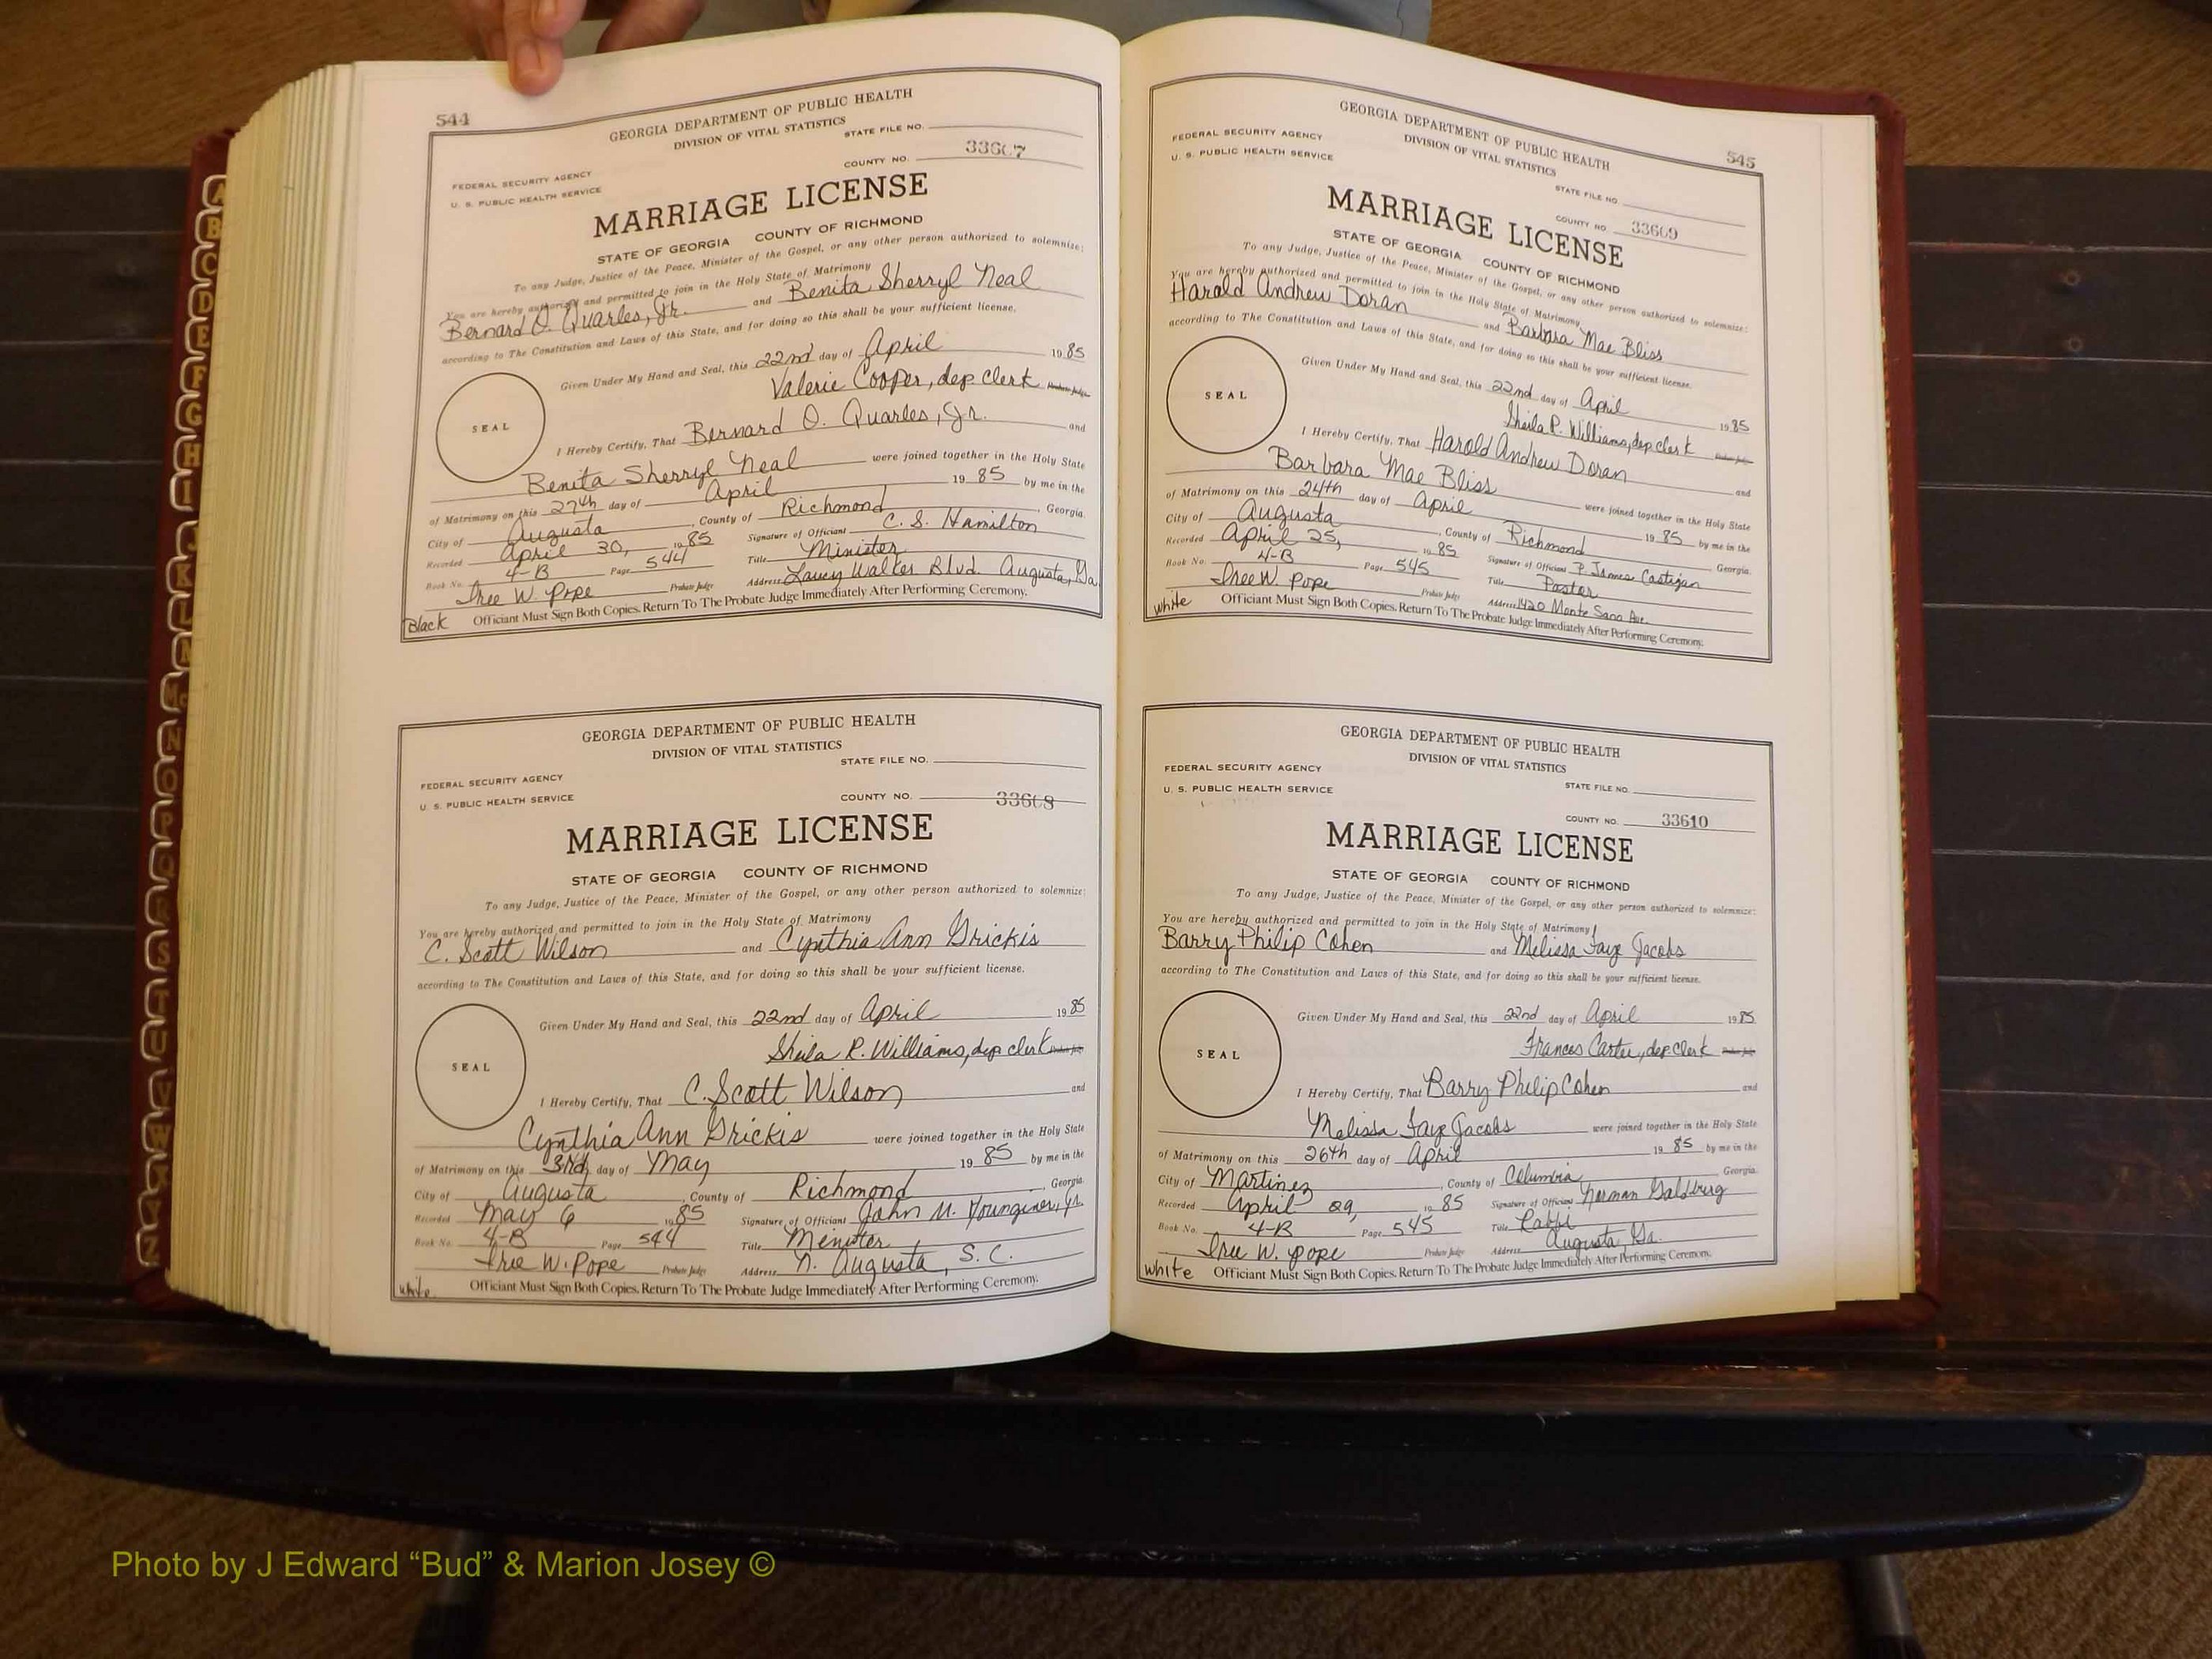 544
GEORGIA DEPARTMENT OF PUBLIC HEALTH
DIVISION OF VITAL STATISTICS
STATE FILE NO.
COUNTY NO. 33607
FEDERAL SECURITY AGENCY
U. S. PUBLIC HEALTH SERVICE
MARRIAGE LICENSE
STATE OF GEORGIA COUNTY OF RICHMOND
To any Judge, Justice of the Peace, Minister of the Gospel, or any other person authorized to solemnize:
You are hereby authorized and permitted to join in the Holy State of Matrimony
Bernard O. Quarles, Jr. and Benita Sherryl Neal
according to The Constitution and Laws of this State, and for doing so this shall be your sufficient license.
Given Under My Hand and Seal, this 22nd day of April 1985
Valerie Cooper, dep clerk Probate Judge
SEAL
I Hereby Certify, That Bernard O. Quarles, Jr. and
Benita Sherryl Neal were joined together in the Holy State
of Matrimony on this 27th day of April 19 85 by me in the
City of Augusta, County of Richmond, Georgia.
Recorded April 30, 1985 Signature of Officiant C. S. Hamilton
Book No. 4-B Page 544 Title Minister
Iree W. Pope Probate Judge Address Laney Walker Blvd. Augusta, Ga
Black Officiant Must Sign Both Copies. Return To The Probate Judge Immediately After Performing Ceremony.
GEORGIA DEPARTMENT OF PUBLIC HEALTH
DIVISION OF VITAL STATISTICS
STATE FILE NO.
FEDERAL SECURITY AGENCY
U. S. PUBLIC HEALTH SERVICE
COUNTY NO. 33608
MARRIAGE LICENSE
STATE OF GEORGIA COUNTY OF RICHMOND
To any Judge, Justice of the Peace, Minister of the Gospel, or any other person authorized to solemnize:
You are hereby authorized and permitted to join in the Holy State of Matrimony
C. Scott Wilson and Cynthia Ann Grickis
according to The Constitution and Laws of this State, and for doing so this shall be your sufficient license.
Given Under My Hand and Seal, this 22nd day of April 1985
Sheila P. Williams, dep clerk Probate Judge
SEAL
I Hereby Certify, That C. Scott Wilson and
Cynthia Ann Grickis were joined together in the Holy State
of Matrimony on this 3rd day of May 19 85 by me in the
City of Augusta, County of Richmond, Georgia
Recorded May 6 1985 Signature of Officiant John M. Younginer, Jr.
Book No. 4-B Page 544 Title Minister
Iree W. Pope Probate Judge Address N. Augusta, S. C.
White Officiant Must Sign Both Copies. Return To The Probate Judge Immediately After Performing Ceremony.
545
GEORGIA DEPARTMENT OF PUBLIC HEALTH
DIVISION OF VITAL STATISTICS
FEDERAL SECURITY AGENCY
U. S. PUBLIC HEALTH SERVICE
STATE FILE NO.
COUNTY NO. 33609
MARRIAGE LICENSE
STATE OF GEORGIA COUNTY OF RICHMOND
To any Judge, Justice of the Peace, Minister of the Gospel, or any other person authorized to solemnize:
You are hereby authorized and permitted to join in the Holy State of Matrimony
Harold Andrew Doran and Barbara Mae Bliss
according to The Constitution and Laws of this State, and for doing so this shall be your sufficient license.
Given Under My Hand and Seal, this 22nd day of April 1985
Sheila P. Williams, dep clerk Probate Judge
SEAL
I Hereby Certify, That Harold Andrew Doran and
Barbara Mae Bliss were joined together in the Holy State
of Matrimony on this 24th day of April 19 85 by me in the
City of Augusta, County of Richmond Georgia
Recorded April 25, 1985 Signature of Officiant P. James Costigan
Book No. 4-B Page 545 Title Pastor
Iree W. Pope Probate Judge Address 1420 Monte Sano Ave.
White Officiant Must Sign Both Copies. Return To The Probate Judge Immediately After Performing Ceremony.
GEORGIA DEPARTMENT OF PUBLIC HEALTH
DIVISION OF VITAL STATISTICS
FEDERAL SECURITY AGENCY
U. S. PUBLIC HEALTH SERVICE
STATE FILE NO.
COUNTY NO. 33610
MARRIAGE LICENSE
STATE OF GEORGIA COUNTY OF RICHMOND
To any Judge, Justice of the Peace, Minister of the Gospel, or any other person authorized to solemnize:
You are hereby authorized and permitted to join in the Holy State of Matrimony
Barry Philip Cohen and Melissa Faye Jacobs
according to The Constitution and Laws of this State, and for doing so this shall be your sufficient license.
Given Under My Hand and Seal, this 22nd day of April 1985
Frances Carter, dep clerk Probate Judge
SEAL
I Hereby Certify, That Barry Philip Cohen and
Melissa Faye Jacobs were joined together in the Holy State
of Matrimony on this 26th day of April 19 85 by me in the
City of Martinez, County of Columbia, Georgia.
Recorded April 29, 1985 Signature of Officiant Norman Goldburg
Book No. 4-B Page 545 Title Rabbi
Iree W. Pope Probate Judge Address Augusta, Ga.
White Officiant Must Sign Both Copies. Return To The Probate Judge Immediately After Performing Ceremony.
Photo by J Edward “Bud” & Marion Josey ©